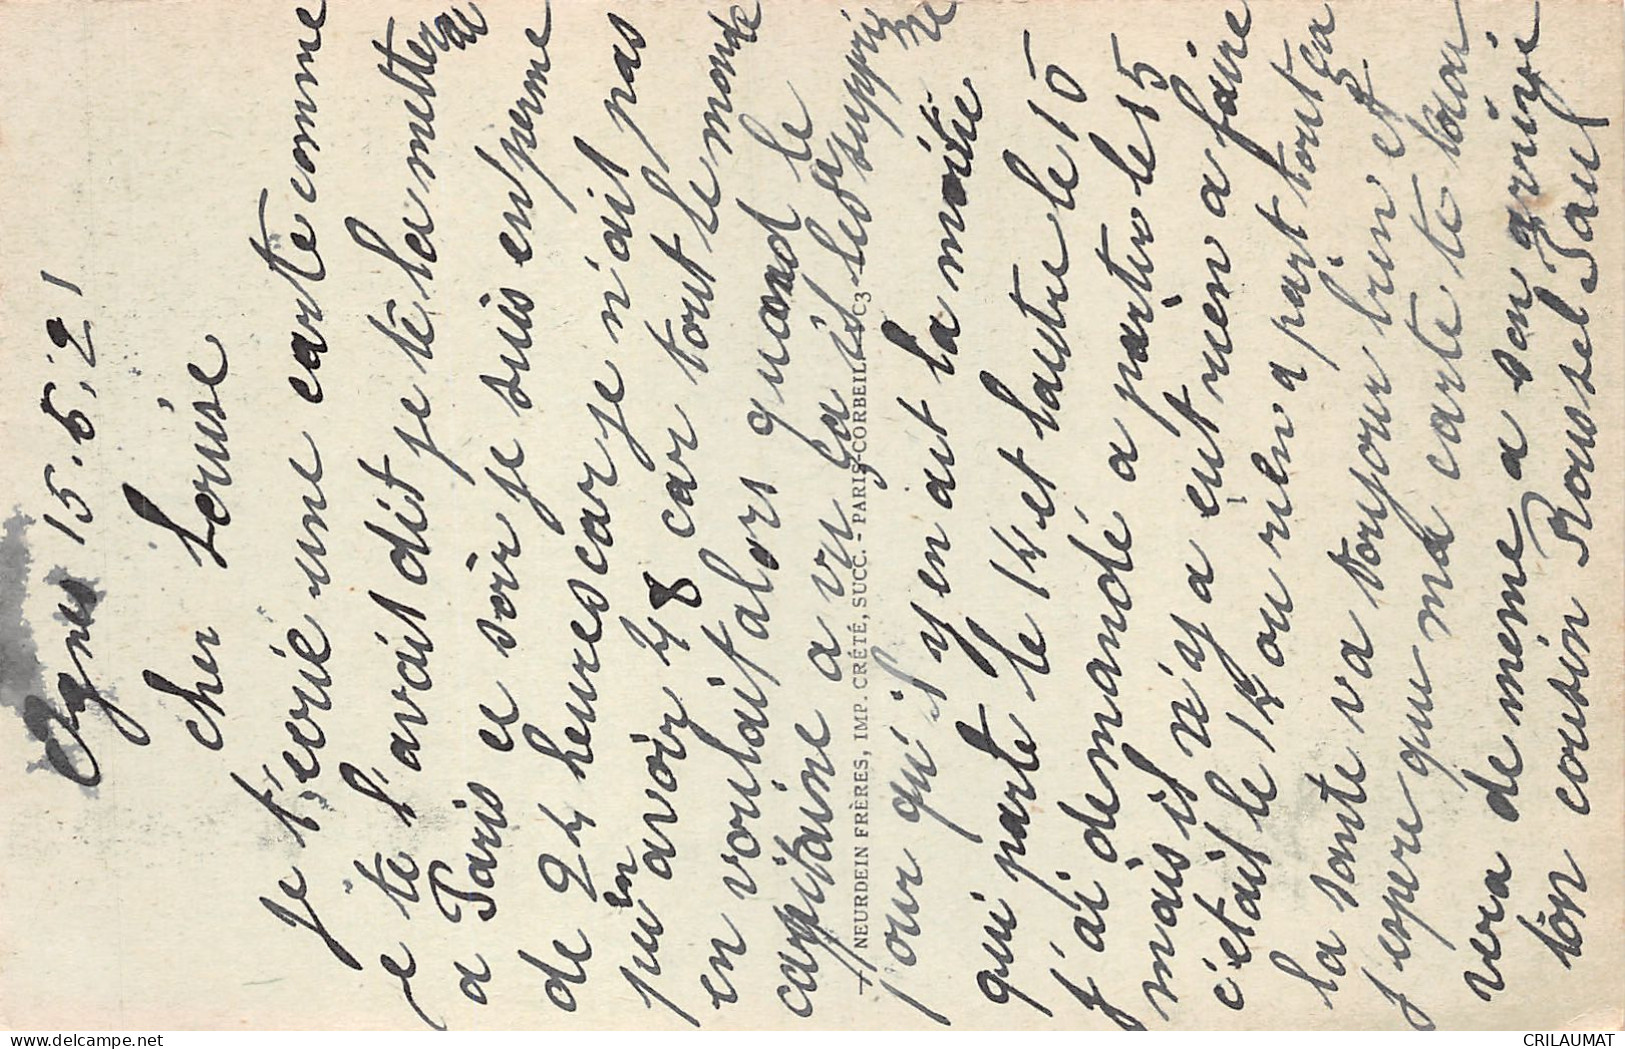 Ognes 15.5.21
cher Louise
Je t'ecrie une carte comme
je te l'avait dit je te la metterai
a Paris ce soir je suis en perme
de 24 heures car je n'ait pas
pu en avoir 48 car tout le monde
en voulait alors quand le
capitaine a vu ça il les a supprimé
pour qu'il y en ait la moitie
qui parte le 14 et l'autre le 15
J'ai demandé a partir le 15
mais il n'y a eut rien a faire
c'était le 14 ou rien a part tout ça
la sante va toujour bien et
j'espere que ma carte te trou
vera de meme a son arrivé
ton cousin Roussel Paul
NEURDEIN FRÈRES, IMP. CRÉTÉ, SUCC. - PARIS-CORBEIL
CRILAUMAT